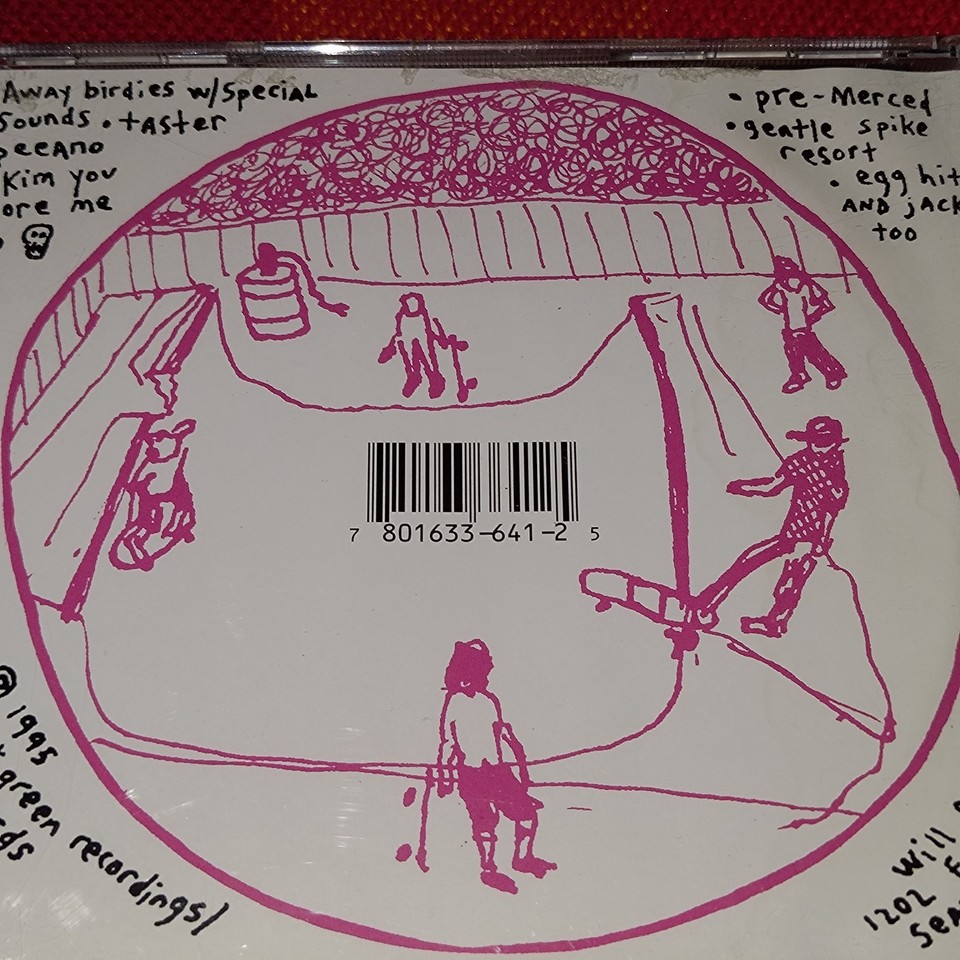 Away birdies w/special
sounds • taster
Kim you
ore me
• pre-Merced
• gentle spike
resort
• egg hit
AND jack
too
7 801633-641-2 5
1995
green recordings/
Will
1202